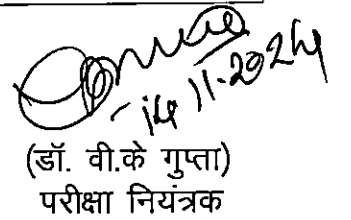 14.11.2024
(डॉ. वी.के गुप्ता)
परीक्षा नियंत्रक